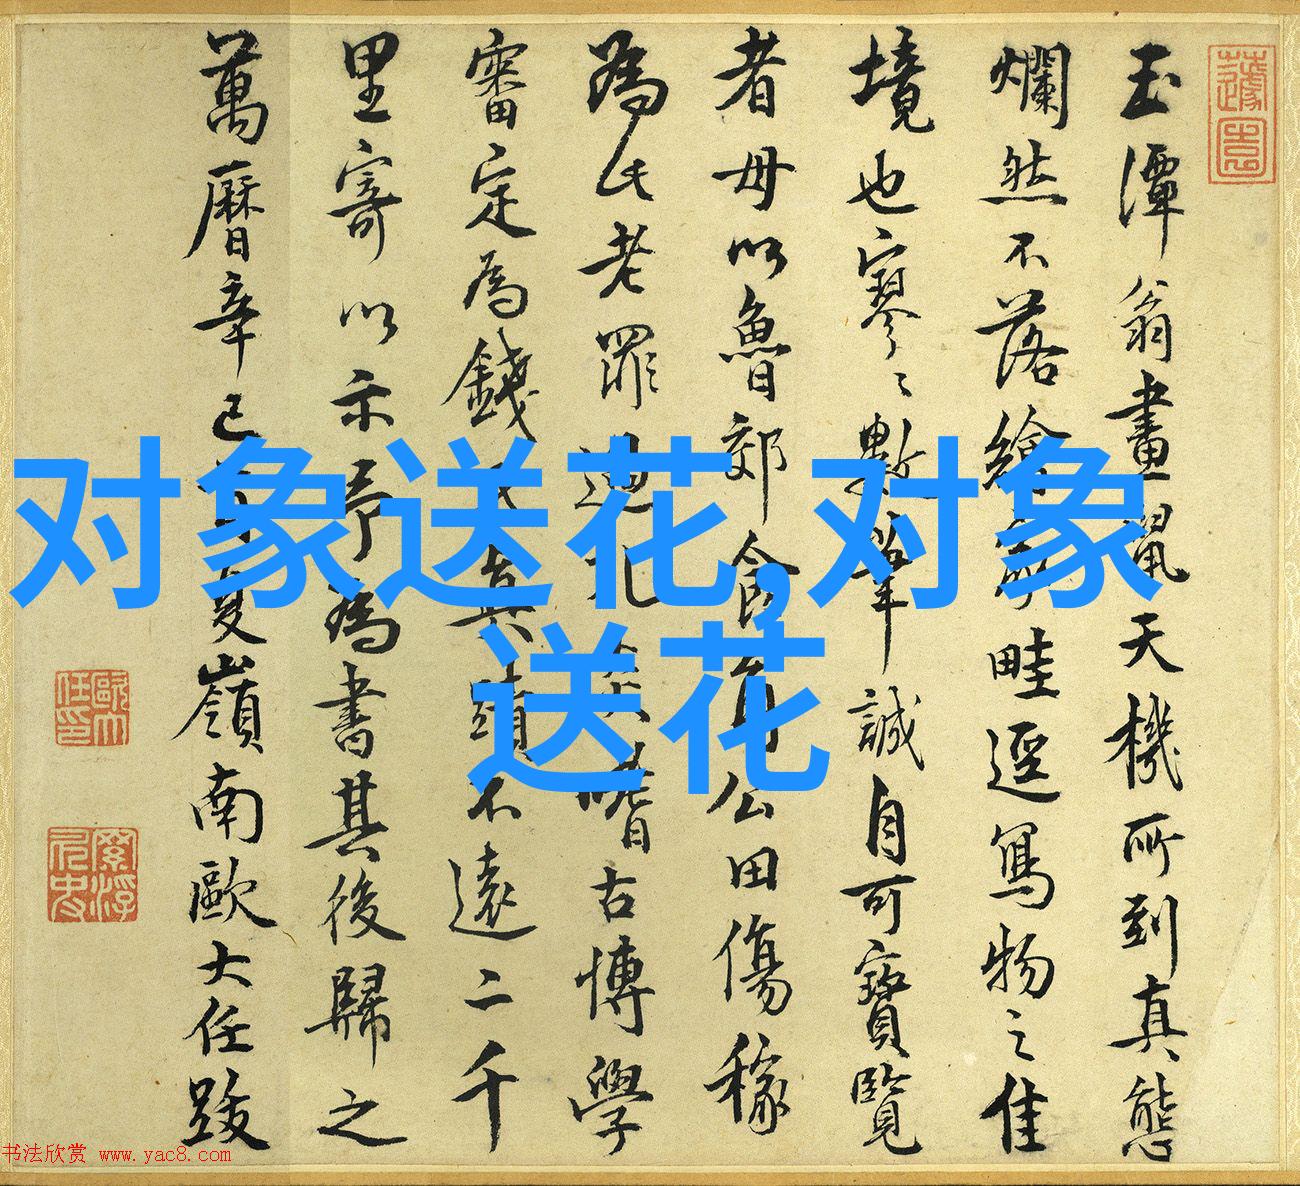 玉潭翁畫鼠天機所到真態
爛然不落繪家畦逕寫物之佳
境也寥々數筆誠自可寶覽
者毋以魯郊食育公田傷稼
為氏老罪過凡矣嗜古博學
審定為錢氏真蹟不遠二千
里寄以示予為書其後歸之
萬曆辛巳夏嶺南歐大任跋
对象送花,对象
送花
书法欣赏 www.yac8.com